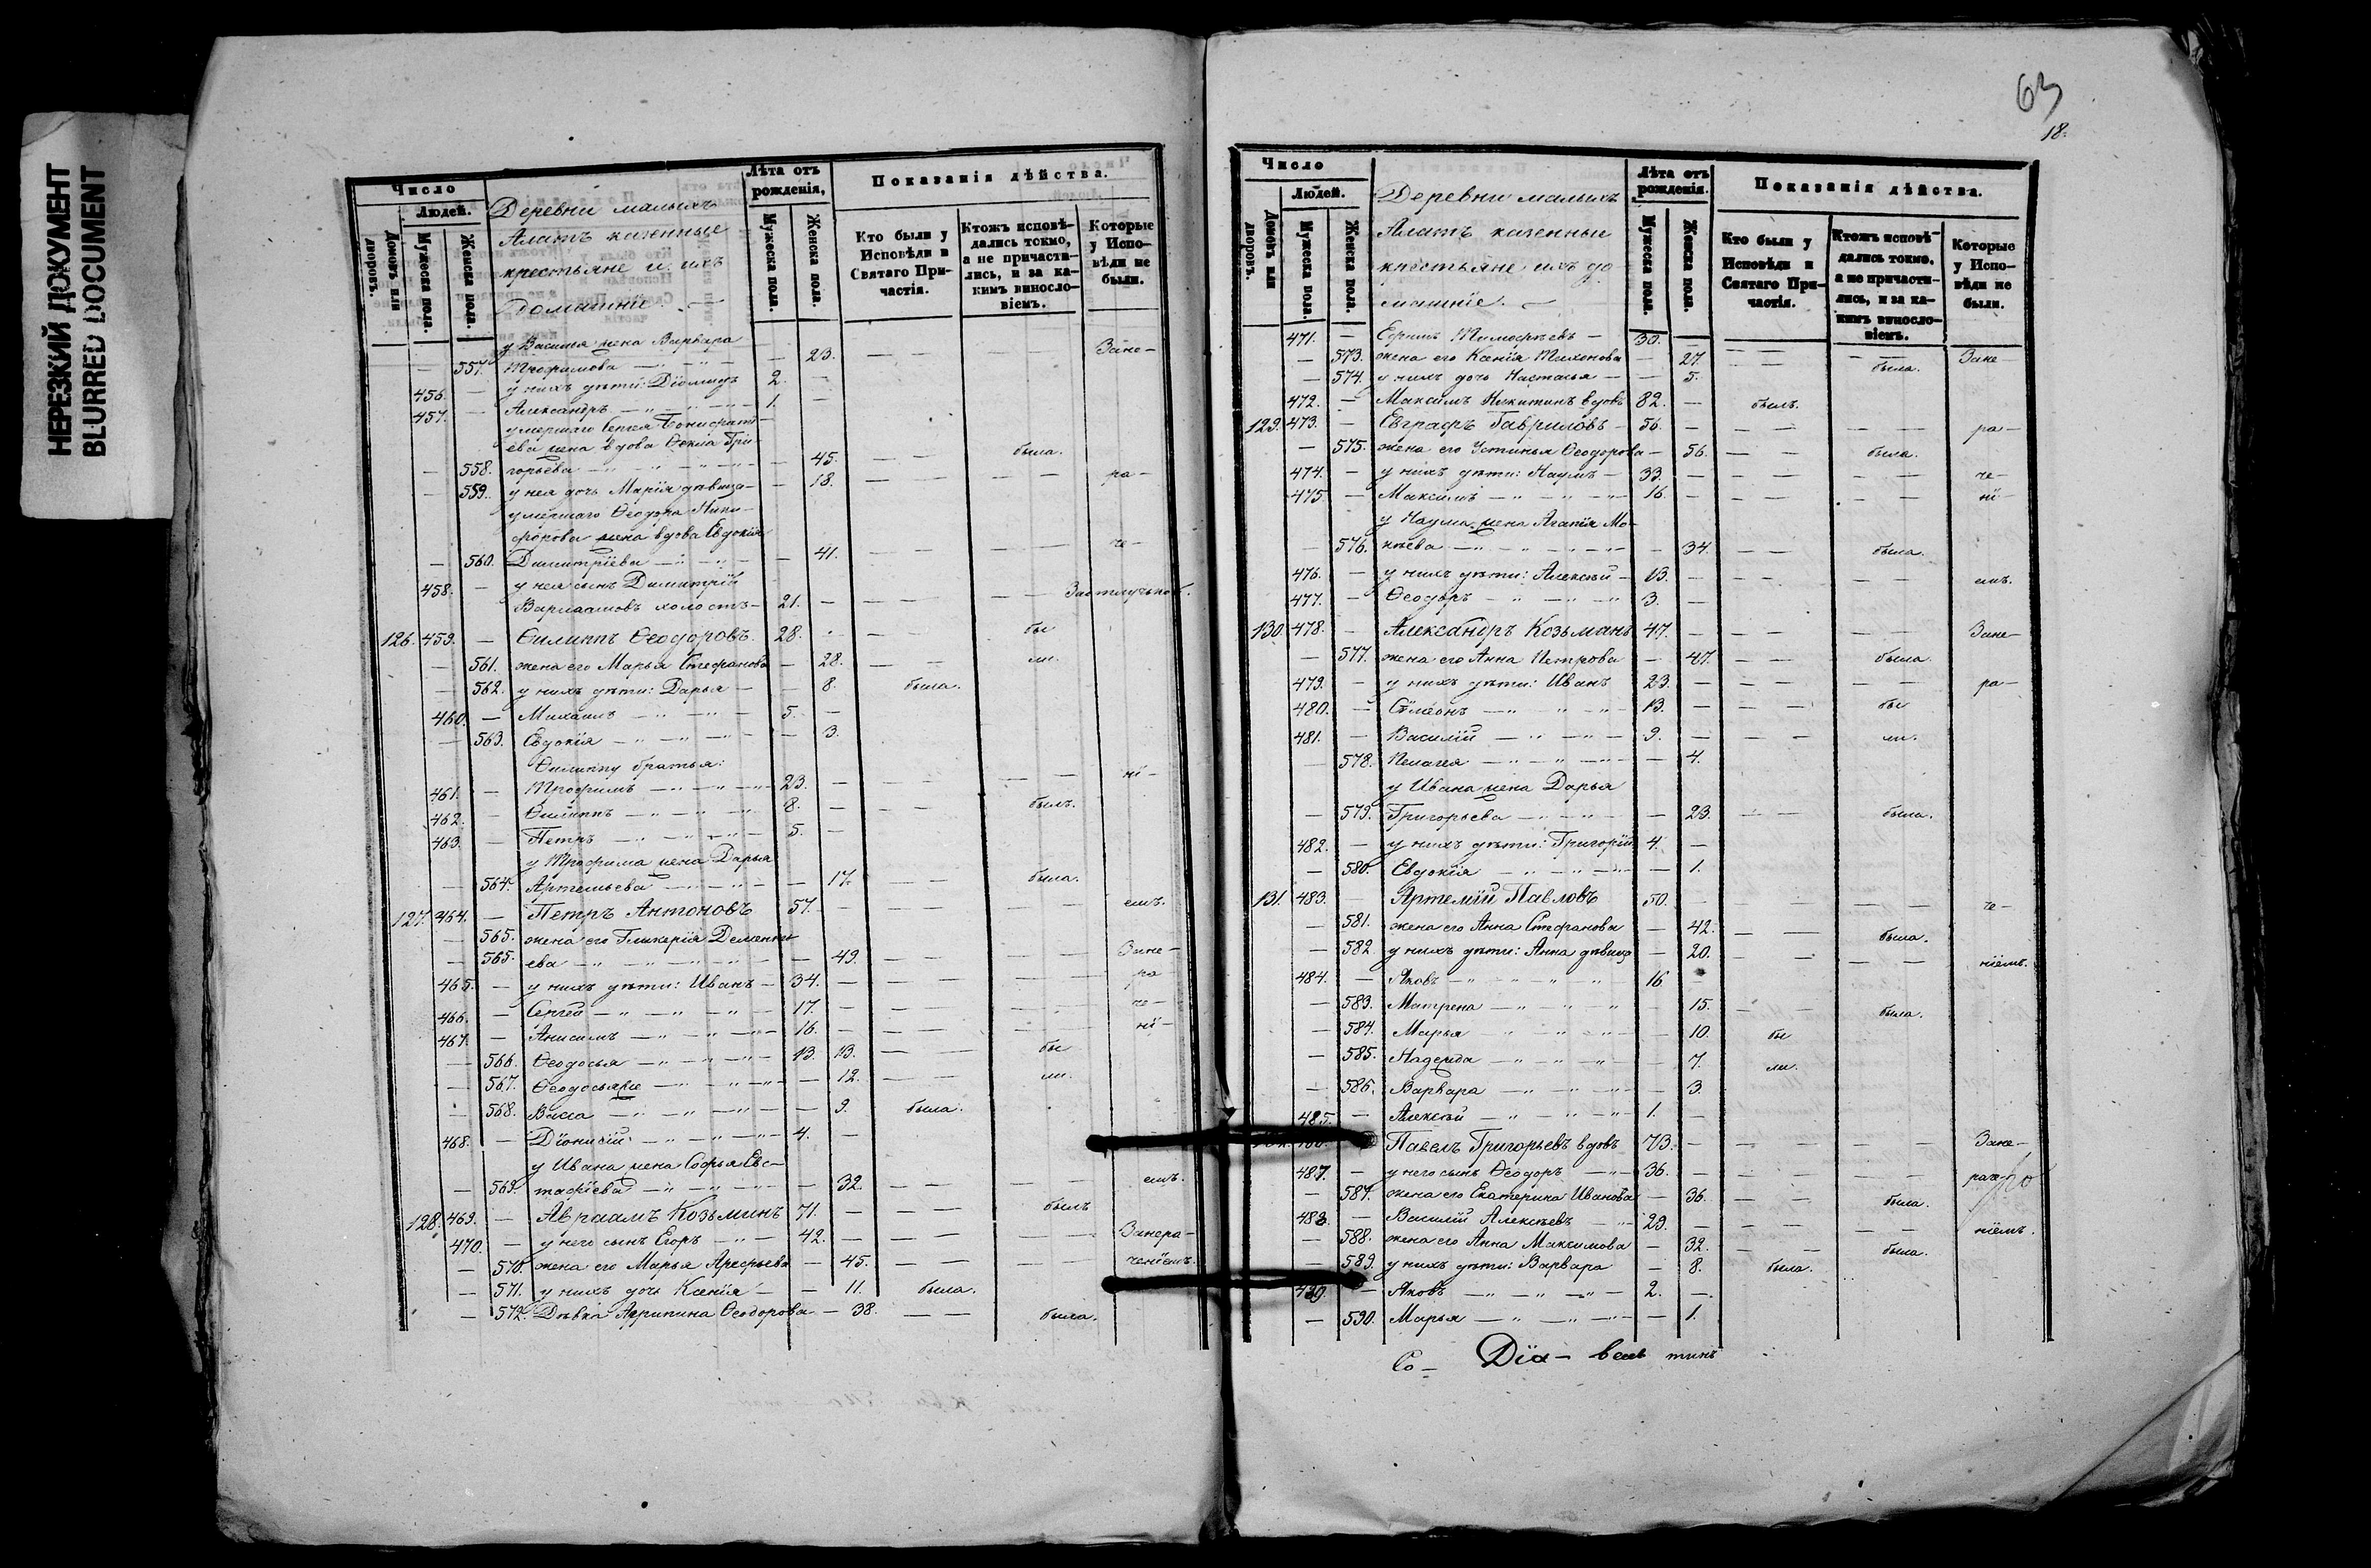 НЕРЕЗКИЙ ДОКУМЕНТ
BLURRED DOCUMENT
Число
Людей.
Домовъ или дворовъ.
Мужеска пола.
Женска пола.
Деревни малыхъ
Алатъ казенные
крестьяне и ихъ
Домашніе. —
Лѣта отъ рожденія,
Мужеска пола.
Женска пола.
Показанія дѣйства.
Кто были у Исповѣди и Святаго Причастія.
Ктожъ исповѣдались токмо, а не причастились, и за какимъ винословіемъ.
Которые у Исповѣди не были.
у Василья жена Варвара
— 557. Трофимова — 23. — — — — Зане-
456. — у нихъ дѣти: Діомидъ 2. —
457. — Александръ — 1. —
умершаго Сергея Бонифатi-
ева жена вдова Ѳекла Гри-
— 558. горьева — 45. — — была.
— 559. у нея дочь Марія дѣвица — 18. — — — — ра-
умершаго Ѳеодора Ники-
форова жена вдова Евдокія
— 560. Димитріева — 41. — — — — че-
458. — у нея сынъ Димитрій
Варлаамовъ холостъ — 21. — — — — —
126. 459. — Филиппъ Ѳеодоровъ 28. — — — бы
— 561. жена его Марья Стефанова — 28. — — ли.
— 562. у нихъ дѣти: Дарья — — 8. была.
460. — Михаилъ — 5. —
— 563. Евдокія — 3.
Филиппу братья:
461. — Трофимъ — 23. — — — — ні-
462. — Филиппъ — 8. — — — былъ.
463. — Петръ — 5. —
у Трофима жена Дарья
— 564. Артемьева — 17. — — была.
127. 464. — Петръ Антоновъ 57. — — — — — емъ.
— 565. жена его Гликерія Дементі-
— 565. ева — 49. — — — — Зане-
465. — у нихъ дѣти: Иванъ — 34. — — — — — ра
466. — Сергей — 17. — — — — — че-
467. — Анисимъ — 16. — — — — — ні-
— 566. Ѳеодосья — 13. 13. — — бы
— 567. Ѳеодосья же — 12. — — ли.
— 568. Васса — 9. была.
468. — Діонисій — 4. —
у Ивана жена Софья Евс-
— 569. тафіева — 32. — — — — емъ.
128. 469. — Авраамъ Козьминъ 71. — — — былъ
470. — у него сынъ Егоръ — 42. — — — — — Занера-
— 570. жена его Марья Арефьева — 45. — — — — ченіемъ.
— 571. у нихъ дочь Ксенія — — 11. была.
— 572. Дѣвка Агрипина Ѳеодорова — 38. — — была.
63
18.
Число
Людей.
Домовъ или дворовъ.
Мужеска пола.
Женска пола.
Деревни малыхъ
Алатъ казенные
крестьяне ихъ до
машніе. —
Лѣта отъ рожденія.
Мужеска пола.
Женска пола.
Показанія дѣйства.
Кто были у Исповѣди и Святаго Причастія.
Ктожъ исповѣдались токмо, а не причастились, и за какимъ винословіемъ.
Которые у Исповѣди не были.
471. — Ефимъ Тимофѣевъ — 30. — — — — — Зане-
— 573. жена его Ксенія Тихонова — 27. — — была.
— 574. у нихъ дочь Настасья — — 5.
472. — Максимъ Никитинъ вдовъ 82. — былъ.
129. 473. — Евграфъ Гавриловъ — 56. — — — — — ра-
— 575. жена его Устинья Ѳеодорова — 56. — — была.
474. — у нихъ дѣти: Наумъ — 33. — — — — — че-
475 — Максимъ — 16. — — — — — ні-
у Наума жена Агапія Мо-
— 576. кѣева — 34. — — была.
476. — у нихъ дѣти: Алексѣй — 13. — — — — — емъ.
477. — Ѳеодоръ — 3. —
130. 478. — Александръ Козьминъ 47. — — — — — Зане-
— 577. жена его Анна Петрова — 47. — — была.
479. — у нихъ дѣти: Иванъ 23. — — — — — ра-
480. — Сѵмеонъ — 13. — — — бы
481. — Василій — 9. — — — ли.
— 578. Пелагея — 4.
у Ивана жена Дарья
— 579. Григорьева — 23. — — была.
482. — у нихъ дѣти: Григорій 4. —
— 580. Евдокія — 1.
131. 483. — Артемій Павловъ 50. — — — — — че-
— 581. жена его Анна Стефанова — 42. — — была.
— 582 у нихъ дѣти: Анна дѣвица — 20. — — — — ніемъ.
484. — Яковъ — 16. —
— 583. Матрена — 15. — — была.
— 584. Марья — 10. бы
— 585. Надежда — 7. ли.
— 586. Варвара — 3.
485. — Алексѣй — 1. —
Павелъ Григорьевъ вдовъ 73. — — — — — Зане-
487. — у него сынъ Ѳеодоръ — 36. — — — — —
— 587. жена его Екатерина Иванова — 36. — — была.
488. — Василій Алексѣевъ — 29. — — — — — ніемъ.
— 588. жена его Анна Максимова — 32. — — была.
— 589. у нихъ дѣти: Варвара — 8. была.
489. — Яковъ — 2. —
— 590. Марья — 1.
Со- Діа-